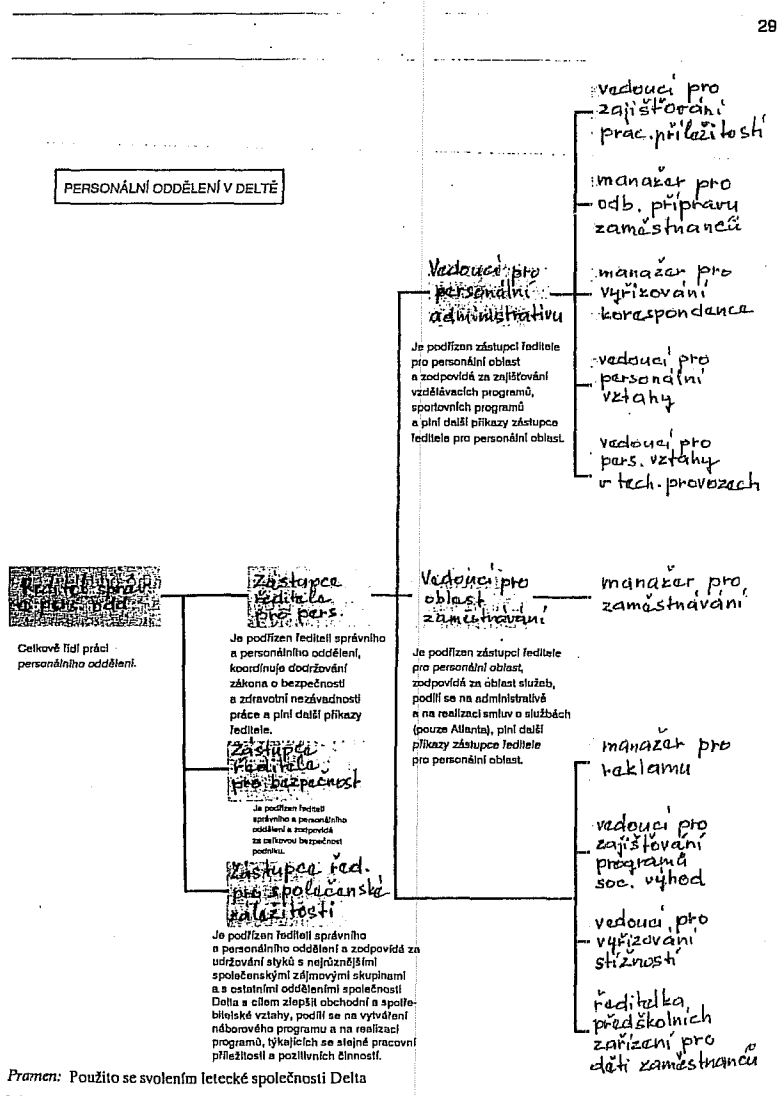 29
PERSONÁLNÍ ODDĚLENÍ V DELTĚ
Ředitel správ.
a pers. odd.
Celkově řídí práci
personálního oddělení.
Zástupce
ředitele
pro pers.
Je podřízen řediteli správního
a personálního oddělení,
koordinuje dodržování
zákona o bezpečnosti
a zdravotní nezávadnosti
práce a plní další příkazy
ředitele.
Zástupce
ředitele
pro bezpečnost
Je podřízen řediteli
správního a personálního
oddělení a zodpovídá
za celkovou bezpečnost
podniku.
Zástupce řed.
pro společenské
záležitosti
Je podřízen řediteli správního
a personálního oddělení a zodpovídá za
udržování styků s nejrůznějšími
společenskými zájmovými skupinami
a s ostatními odděleními společnosti
Delta s cílem zlepšit obchodní a spotře-
bitelské vztahy, podílí se na vytváření
náborového programu a na realizaci
programů, týkajících se stejné pracovní
příležitosti a pozitivních činností.
Vedoucí pro
personální
administrativu
Je podřízen zástupci ředitele
pro personální oblast
a zodpovídá za zajišťování
vzdělávacích programů,
sportovních programů
a plní další příkazy zástupce
ředitele pro personální oblast.
Vedoucí pro
oblast
zaměstnávání
Je podřízen zástupci ředitele
pro personální oblast,
zodpovídá za oblast služeb,
podílí se na administrativě
a na realizaci smluv o službách
(pouze Atlanta), plní další
příkazy zástupce ředitele
pro personální oblast.
vedoucí pro
zajišťování
prac. příležitostí
manažer pro
odb. přípravu
zaměstnanců
manažer pro
vyřizování
korespondence
vedoucí pro
personální
vztahy
vedoucí pro
pers. vztahy
v tech. provozech
manažer pro
zaměstnávání
manažer pro
reklamu
vedoucí pro
zajišťování
programů
soc. výhod
vedoucí pro
vyřizování
stížností
ředitelka
předškolních
zařízení pro
děti zaměstnanců
Pramen: Použito se svolením letecké společnosti Delta